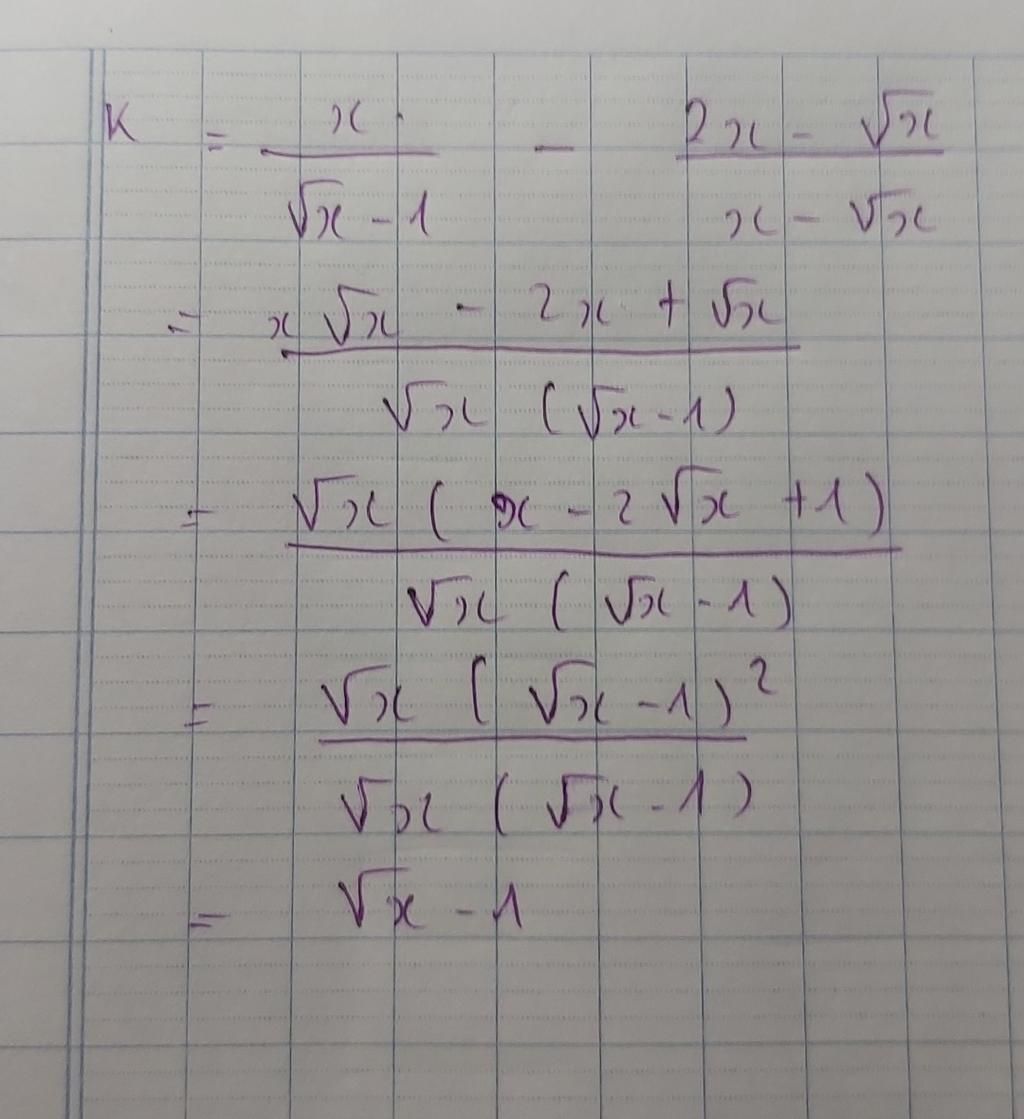 K = x / (√x - 1) - (2x - √x) / (x - √x)
= (x√x - 2x + √x) / (√x (√x - 1))
= (√x (x - 2√x + 1)) / (√x (√x - 1))
= (√x (√x - 1)²) / (√x (√x - 1))
= √x - 1